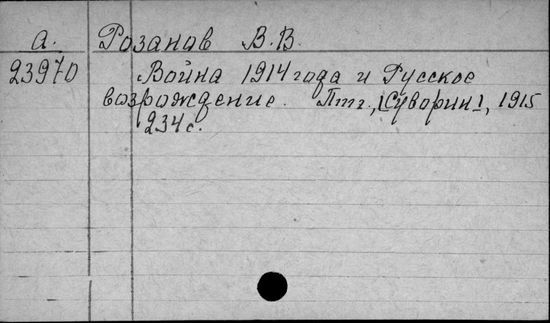 а. Розанов В.В.
23970 Война 1914 года и Русское
возрождение. Птг., [Суворин], 1915
234 с.